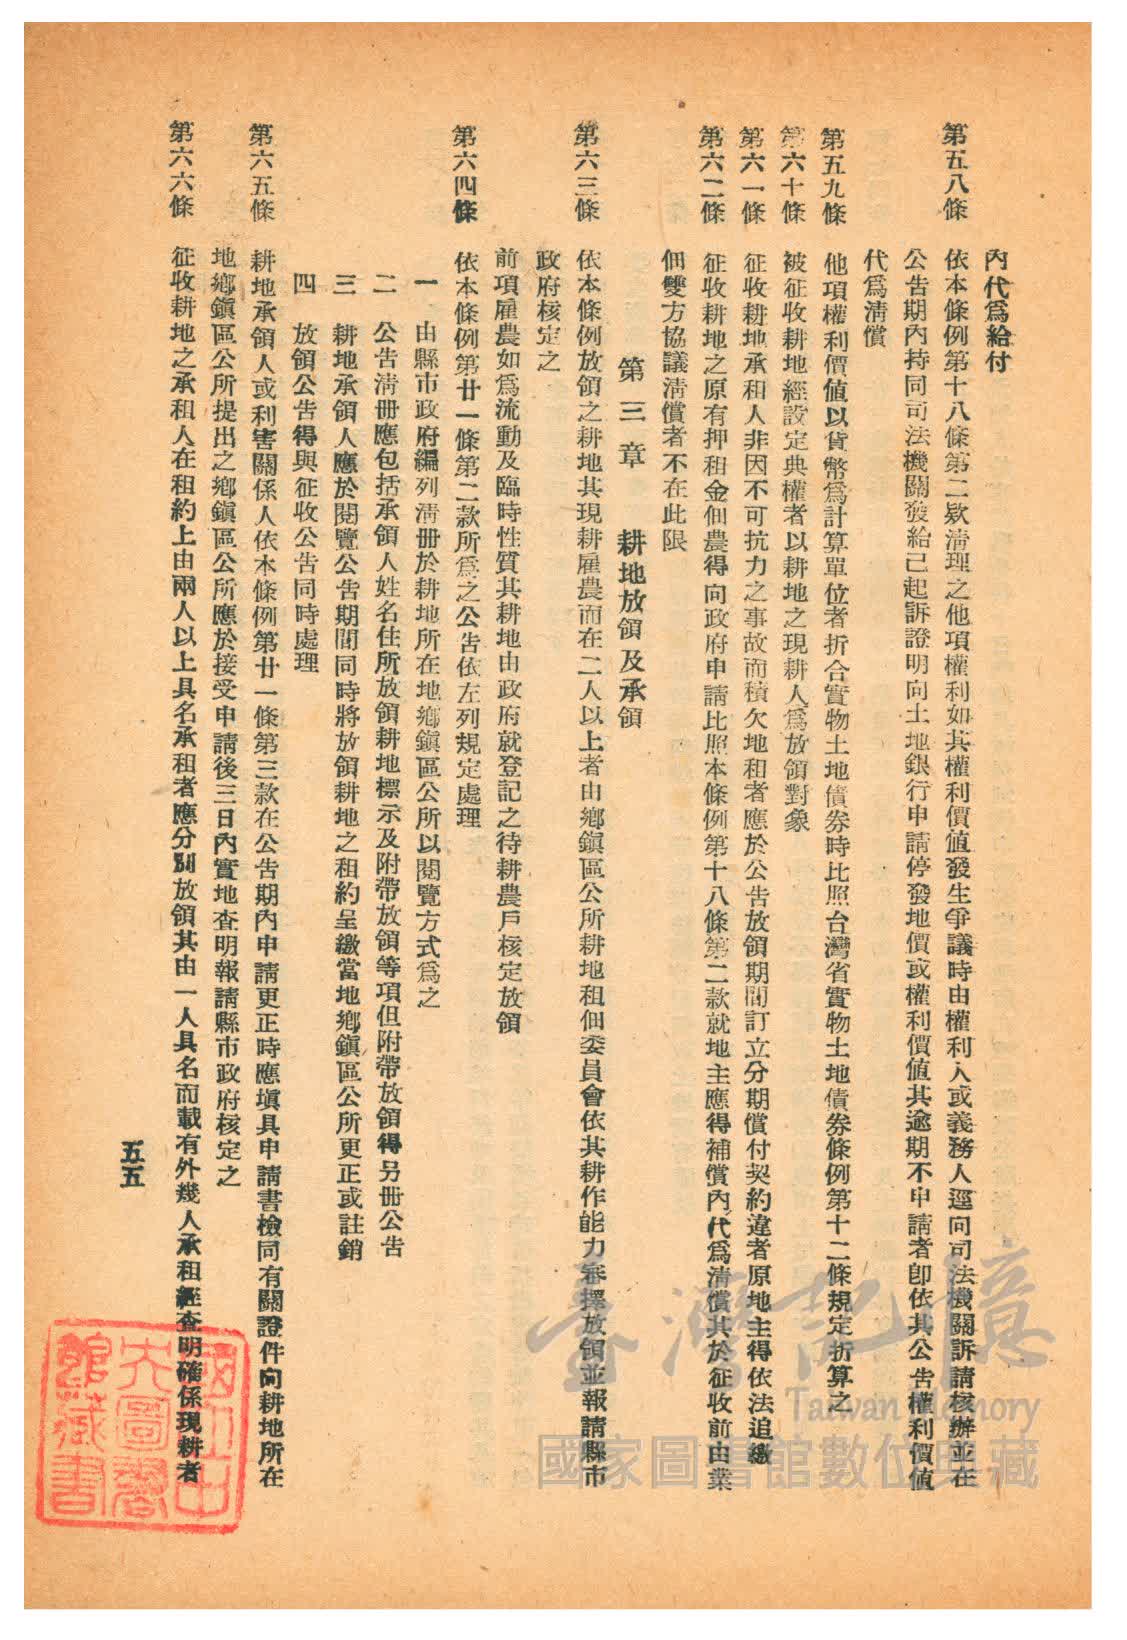 內代爲給付
第五八條 依本條例第十八條第二款淸理之他項權利如其權利價値發生爭議時由權利人或義務人逕向司法機關訴請核辦並在
公告期內持同司法機關發給已起訴證明向土地銀行申請停發地價或權利價値其逾期不申請者卽依其公告權利價値
代爲淸償
第五九條 他項權利價値以貨幣爲計算單位者折合實物土地債券時比照台灣省實物土地債券條例第十二條規定折算之
第六十條 被征收耕地經設定典權者以耕地之現耕人爲放領對象
第六一條 征收耕地承租人非因不可抗力之事故而積欠地租者應於公告放領期間訂立分期償付契約違者原地主得依法追繳
第六二條 征收耕地之原有押租金佃農得向政府申請比照本條例第十八條第二款就地主應得補償內代爲淸償其於征收前由業
佃雙方協議淸償者不在此限
第三章 耕地放領及承領
第六三條 依本條例放領之耕地其現耕雇農而在二人以上者由鄕鎭區公所耕地租佃委員會依其耕作能力審擇放領並報請縣市
政府核定之
前項雇農如爲流動及臨時性質其耕地由政府就登記之待耕農戶核定放領
第六四條 依本條例第廿一條第二款所爲之公告依左列規定處理
一 由縣市政府編列淸册於耕地所在地鄕鎭區公所以閱覽方式爲之
二 公告淸册應包括承領人姓名住所放領耕地標示及附帶放領等項但附帶放領得另册公告
三 耕地承領人應於閱覽公告期間同時將放領耕地之租約呈繳當地鄕鎭區公所更正或註銷
四 放領公告得與征收公告同時處理
第六五條 耕地承領人或利害關係人依本條例第廿一條第三款在公告期內申請更正時應塡具申請書檢同有關證件向耕地所在
地鄕鎭區公所提出之鄕鎭區公所應於接受申請後三日內實地查明報請縣市政府核定之
第六六條 征收耕地之承租人在租約上由兩人以上具名承租者應分別放領其由一人具名而載有外幾人承租經查明確係現耕者
五五
國立中
央圖書
館藏書
臺灣記憶
Taiwan Memory
國家圖書館數位典藏